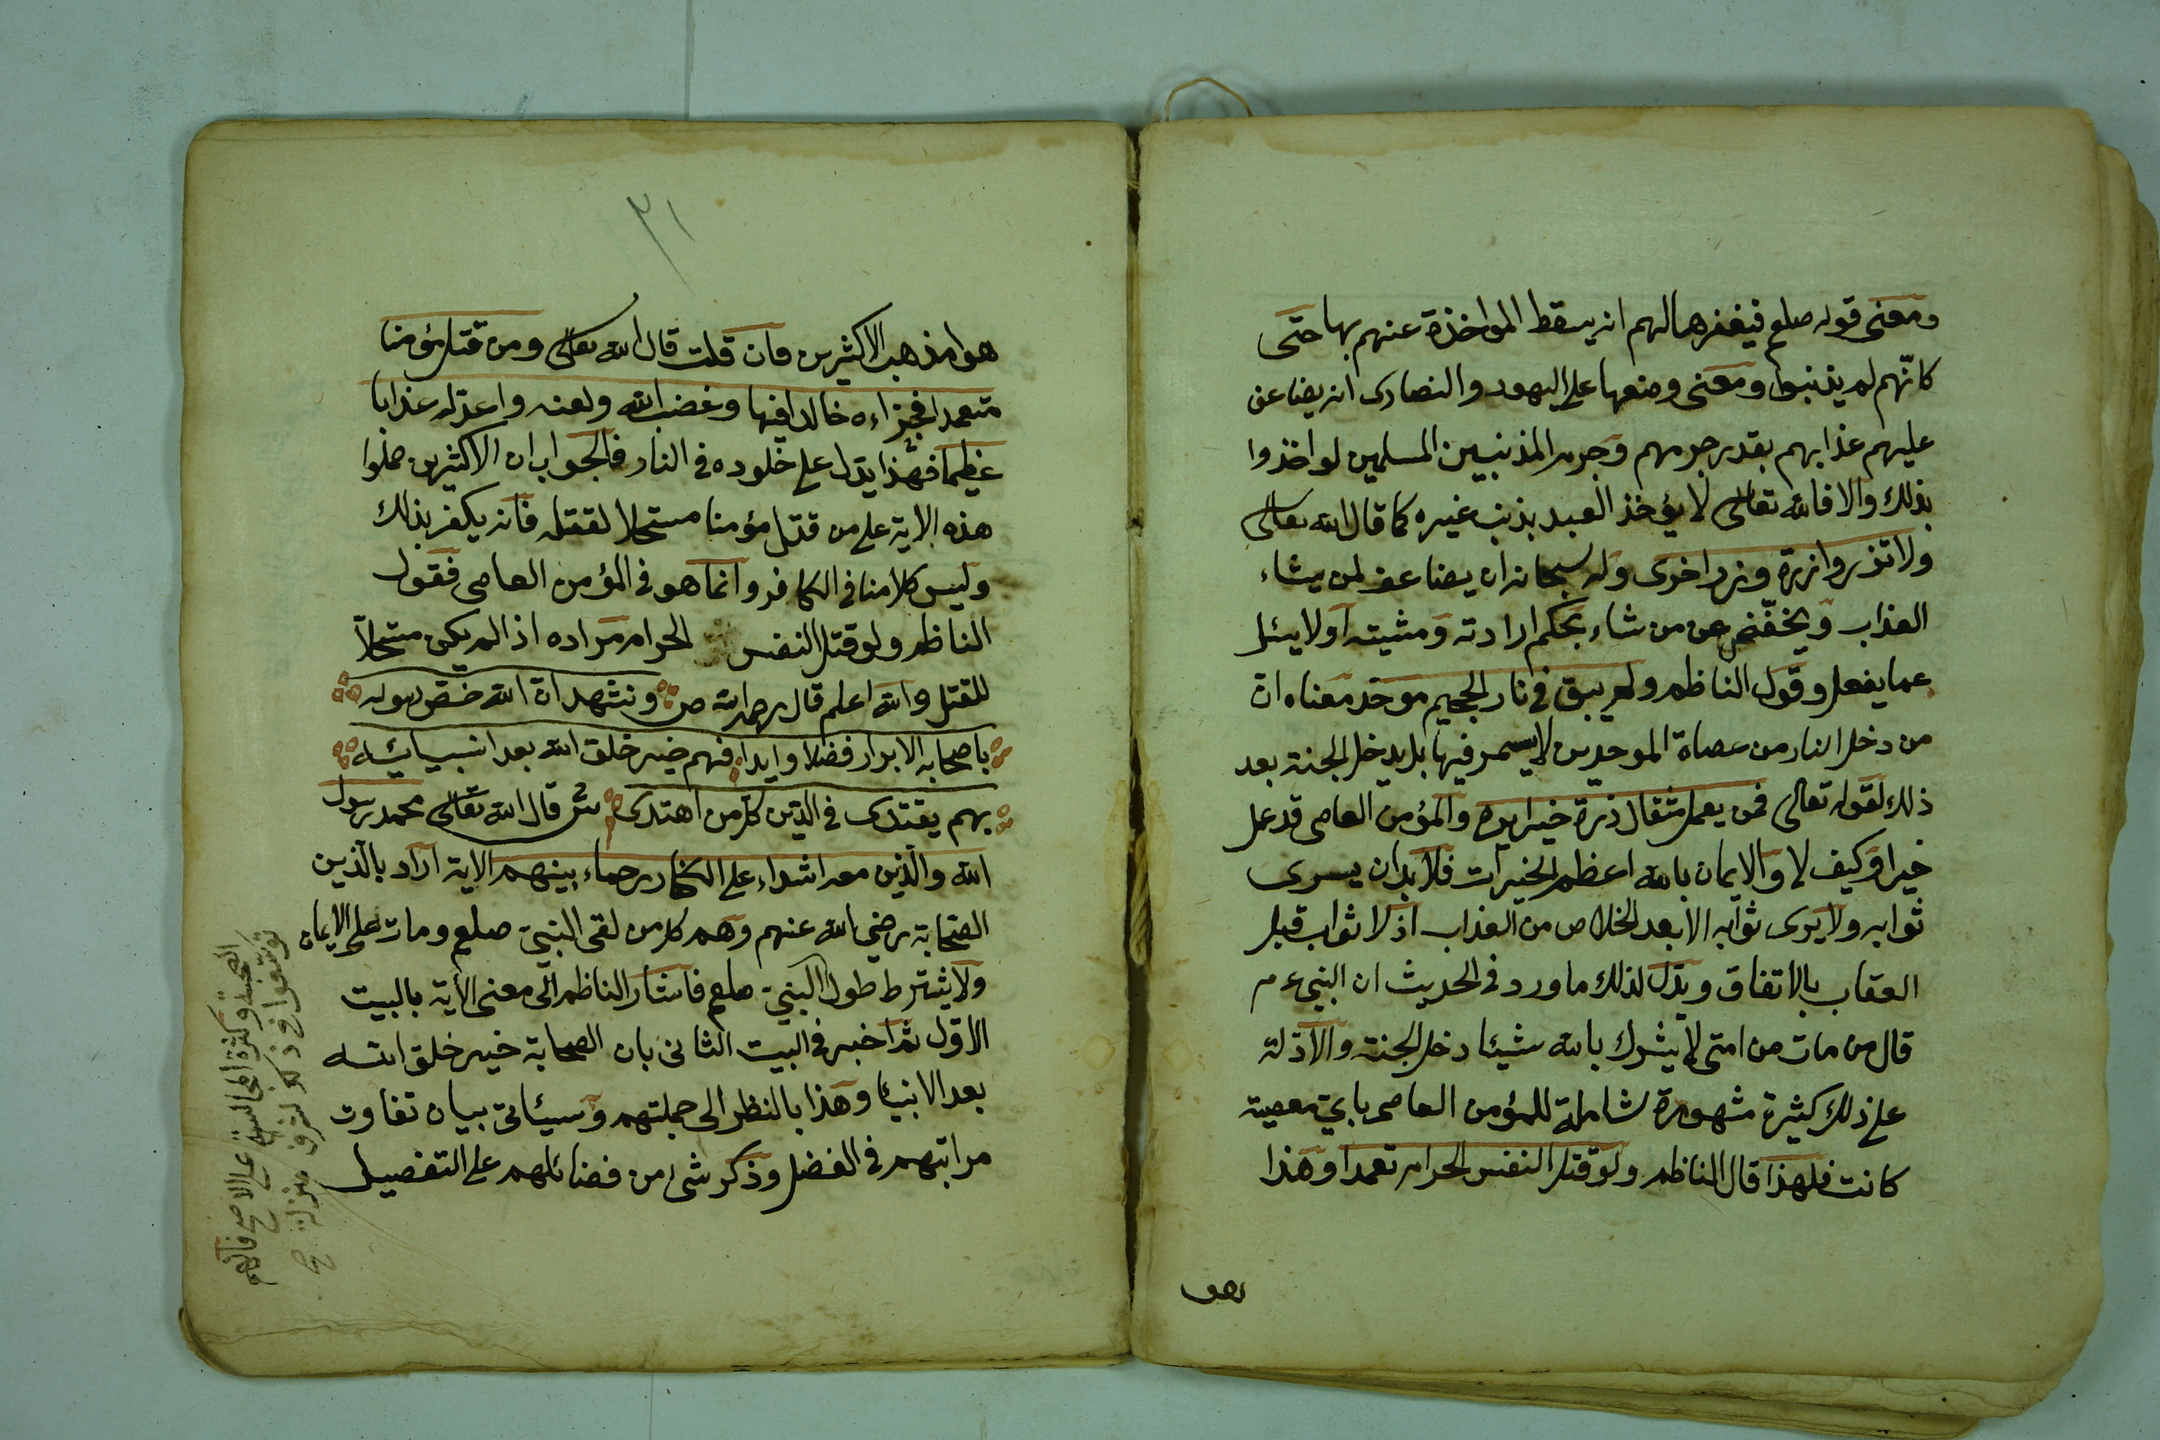 ومعنى قوله صلعم فيغفرها لهم انه يسقط المواخذة عنهم بها حتى
كانّهم لم يذنبوا ومعنى وضعها على اليهود والنصارى انه يضاعف
عليهم عذابهم بقدر جرمهم وجرم المذنبين المسلمين لو اخذوا
بذلك والا فالله تعالى لا يؤخذ العبد بذنب غيره كما قال الله تعالى
ولا تزر وازرة وزر اخرى وله سبحانه ان يضاعف لمن يشاء
العذاب ويخفّفه عن من شاء بحكم ارادته ومشيته اولا يسئل
عما يفعل وقول الناظم ولم يبق في نار الجحيم موحد معناه ان
من دخل النار من عصاة الموحدين لا يستمر فيها بل يدخل الجنة بعد
ذلك لقوله تعالى فمن يعمل مثقال ذرة خيرا يره والمؤمن العاصى قد عمل
خيرا وكيف لا والايمان بالله اعظم الخيرات فلا بد ان يسرى
ثوابه ولا يرى ثوابه الا بعد الخلاص من العذاب اذ لا ثواب قبل
العقاب بالاتفاق ويدل لذلك ما ورد في الحديث ان النبي ع م
قال من مات من امتى لا يشرك بالله شيئا دخل الجنة والادلة
على ذلك كثيرة مشهورة شاملة للمؤمن العاصى باي معصية
كانت فلهذا قال الناظم ولو قتل النفس الحرام تعمدا وهذا
هو
٣١
هوا مذهب الاكثيرين فان قلت قال الله تعالى ومن قتل مؤمنا
متعمدا فجزاءه خالدا فيها وغضب الله ولعنه واعد له عذابا
عظيما فهذا يدل على خلوده في النار فالجواب ان الاكثيرين حملوا
هذه الاية على من قتل مؤمنا مستحلا لقتله فانه يكفر بذلك
وليس كلامنا في الكافر وانما هو في المؤمن العاصى فقول
الناظم ولو قتل النفس الحرام مراده اذ الم يكن مستحلاّ
للقتل والله اعلم قال رحمه الله ص ونشهد ان الله خص رسوله
باصحابه الابرار فضلا وايدا فهم خير خلق الله بعد انبيائه
بهم يقتدى في الدين كل من اهتدى ش قال الله تعالى محمد رسول
الله والذين معه اشداء على الكفار رحماء بينهم الاية اراد بالذين
الصحابة رضي الله عنهم وهم كل من لقى النبيّ صلعم ومات على الايمان
ولا يشترط طول النبيّ صلعم فاشار الناظم الى معنى الاية بالبيت
الاول ثم اخبر في البيت الثانى بان الصحابة خير خلق الله
بعد الانبيا وهذا بالنظر الى جملتهم وسيئاتى بيان تفاوت
مراتبهم في الفضل وذكر شئ من فضائلهم على التفصيل
الصحبة وكثرة المجالسة على الاصح فانهم
توسعوا في ذكر لشرف منزلة